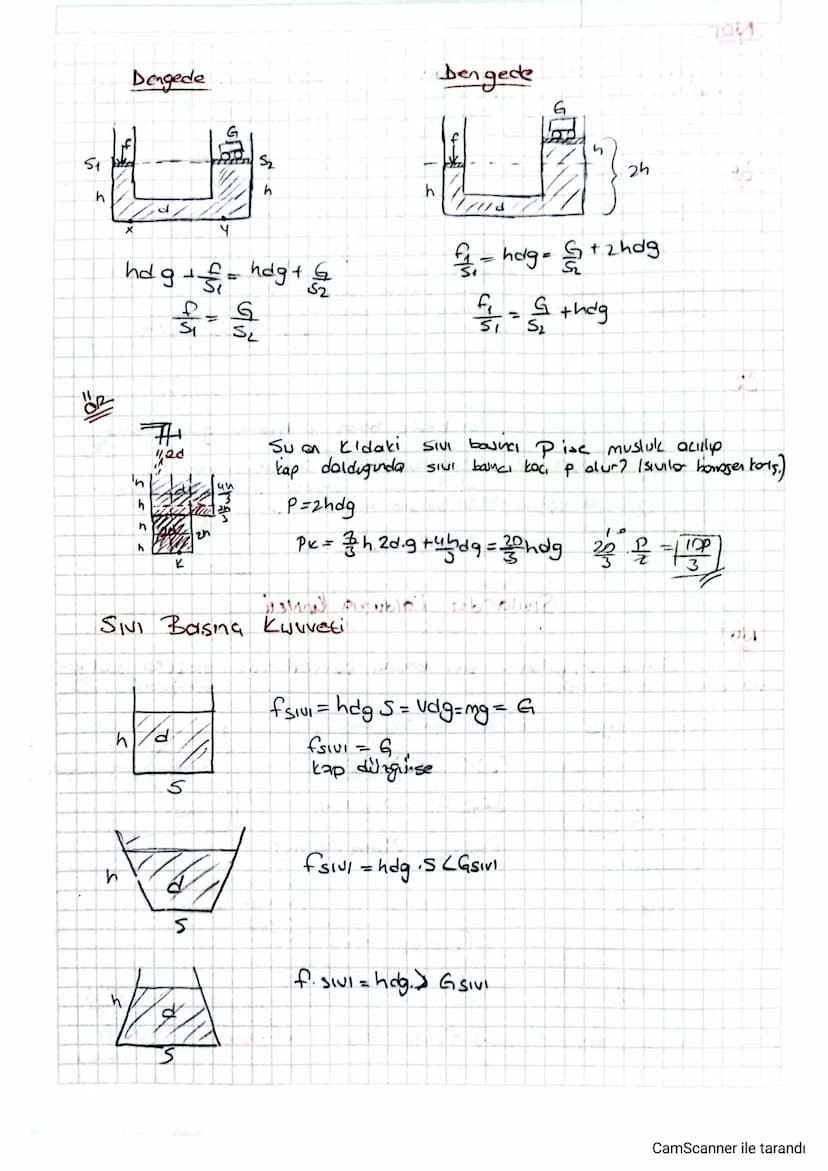 Dengede
Dengede
G
f
S1
S2
h
h
d
x
y
G
f
h
2h
h
d
hdg + f/S1 = hdg + G/S2
f/S1 = G/S2
f1/S1 = hdg = G/S2 + 2hdg
f1/S1 = G/S2 + hdg
ÖR
2d
Su an K'daki sıvı basıncı P ise musluk açılıp
kap doldugunda sıvı basıncı kaç p olur? (sıvılar homojen karış.)
h
h
h
h
4h/3
2h/3
2h
K
P=2hdg
PK = 7/3 h 2d.g + 4h/3 dg = 20/3 hdg 20/3 . P/2 = 10P/3
Sıvı Basınç Kuvveti
h
d
S
fsıvı = hdg S = Vdg = mg = G
fsıvı = G
kap düzgünse
h
d
S
fsıvı = hdg . S < Gsıvı
h
d
S
f.sıvı = hdg.> Gsıvı
CamScanner ile tarandı